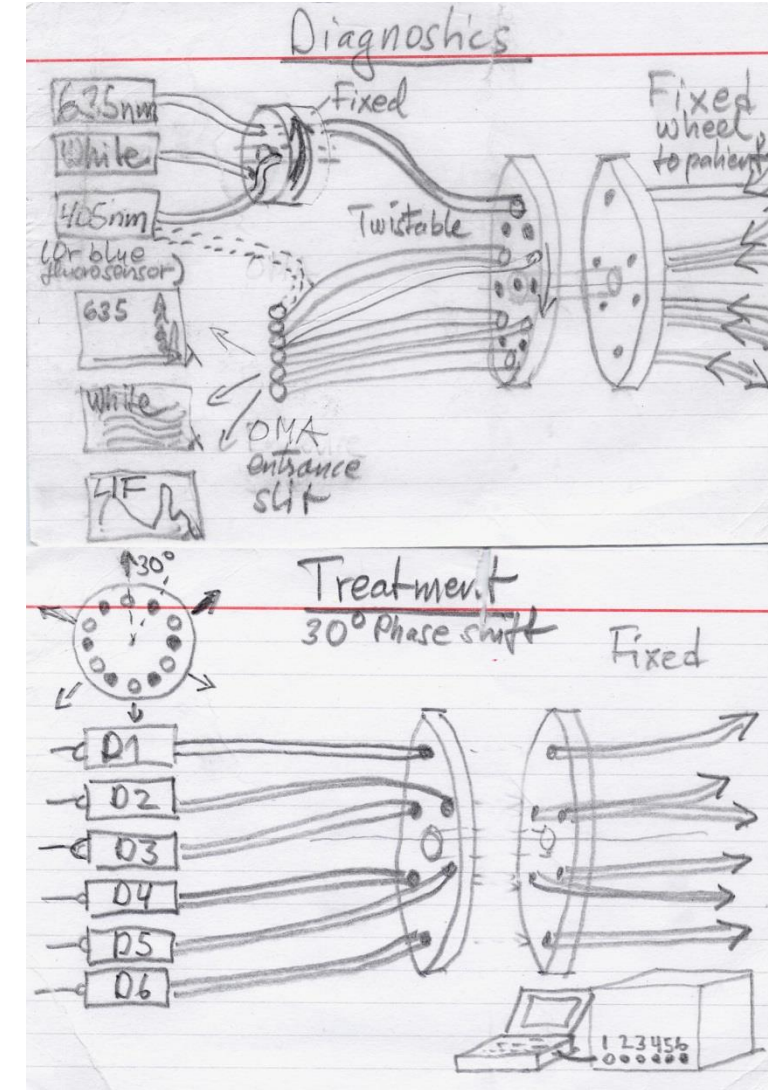 Diagnostics
635nm
White
405nm
(Or blue
fluorosensor)
Fixed
Twistable
Fixed
wheel
to patient
635
White
LIF
OMA
entrance
slit
30°
Treatment
30° Phase shift
Fixed
D1
D2
D3
D4
D5
D6
1 2 3 4 5 6